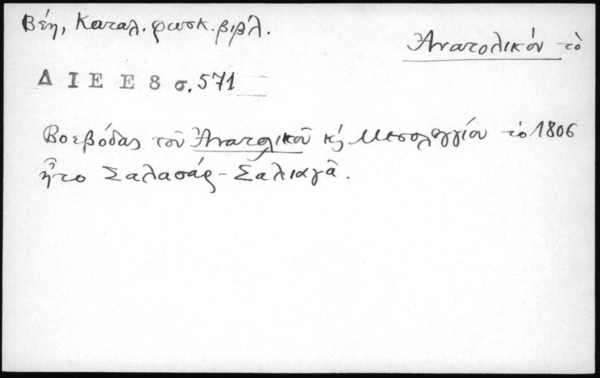 Βέη, Καταλ. φωσκ. βιβλ.
Ἀνατολικόν τὸ
Δ Ι Ε Ε 8 σ. 571
Βοεβόδας τοῦ Ἀνατολικοῦ κ̓ Μεσολογγίου τὸ 1806
ἦτο Σαλασάρ - Σαλιαγᾶ.